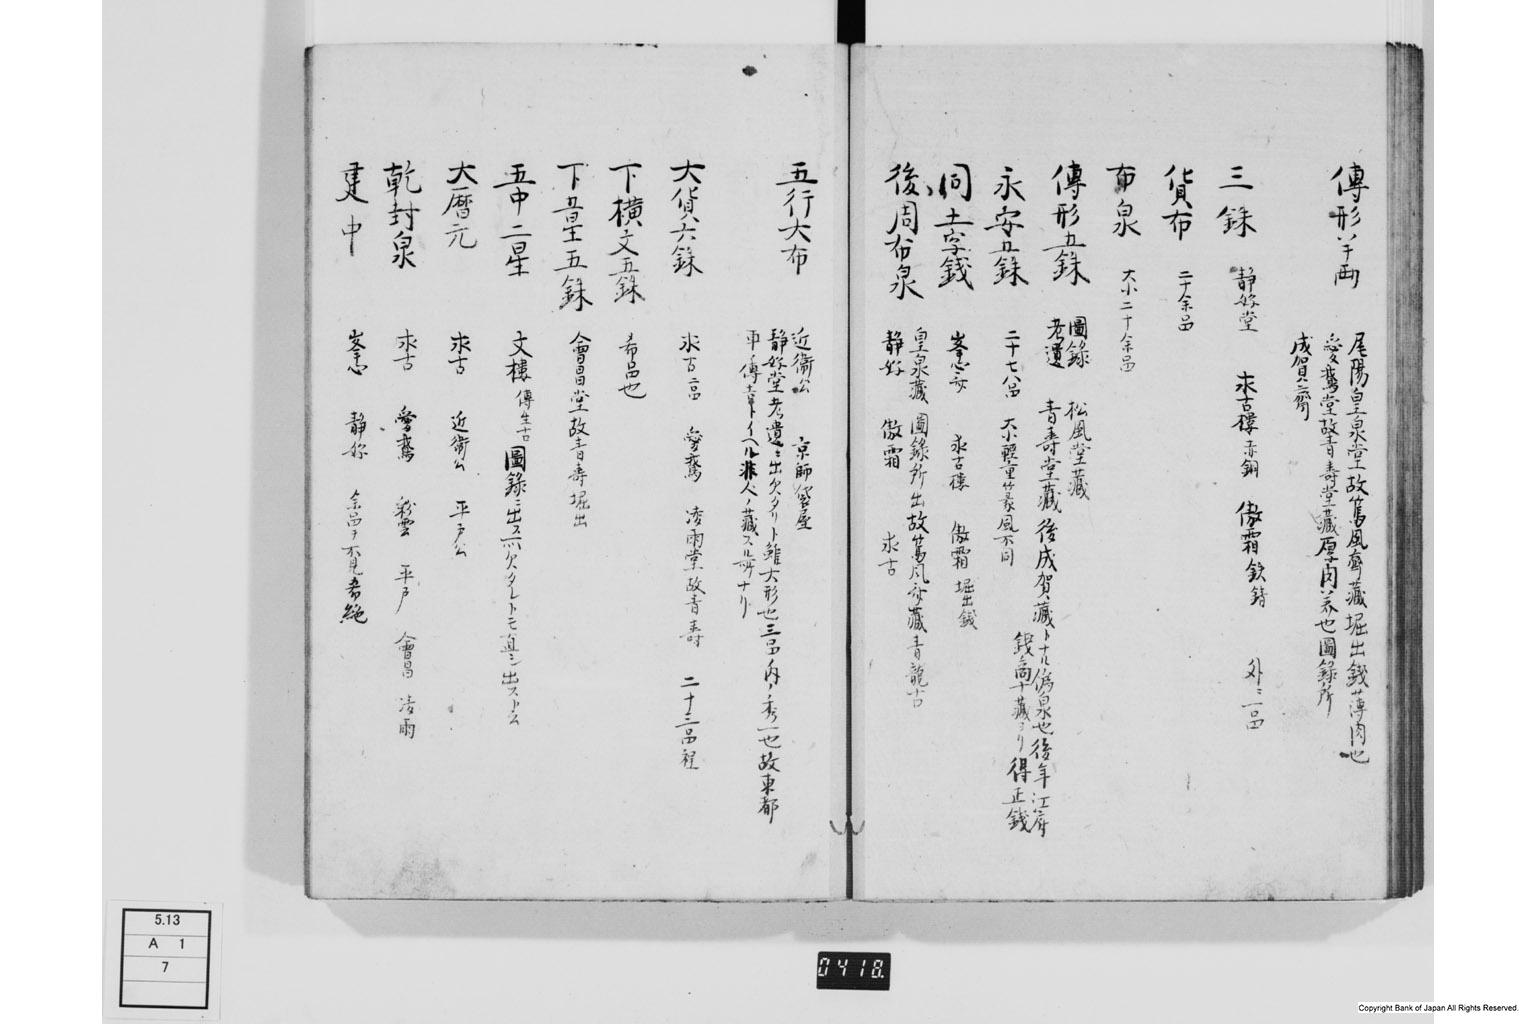 傳形半兩
尾陽皇泉堂故篤風齋藏堀出錢薄肉也
愛鵞堂故青壽堂藏厚肉美也圖錄所
成賀齋
三銖 靜好堂 求古樓赤銅 傲霜鉄錆 外ニ一品
貨布 二十余品
布泉 大小二十余品
傳形五銖 圖錄 松風堂藏
考遺 青壽堂藏 後成賀藏トナル偽泉也後年江府
錢商十藏ヨリ得正錢
永安五銖 二十七八品 大小輕重篆風不同
同土字錢 求古樓 傲霜 堀出錢
後周布泉 皇泉藏 圖錄所出故篤風齋藏青龍古
靜好 傲霜 求古
五行大布 近衞公 京師
靜好堂考遺ニ出欠タリト雖大形也三品ノ内ノ秀一也故東都
藏スル所ナリ
大貨六銖 求古二品 愛鵞 凌雨堂故青壽 二十三品程
下横文五銖 希品也
下星五銖 會昌堂故青壽堀出
五中二星 文樓傳生古圖錄ニ出ス穴欠タレトモ直シ出スト云
大曆元 求古 近衞公 平戸公
乾封泉 求古 愛鵞 彩雲 平戸 會昌 凌雨
建中 峯 靜好 余品ヲ不見希絶
5.13
A 1
7
0418.
Copyright Bank of Japan All Rights Reserved.